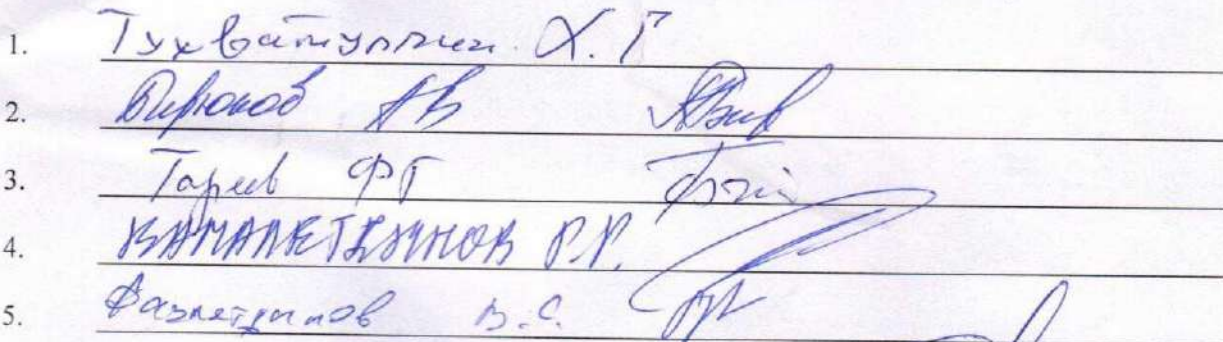 1. Тухватуллин Х. Г
2. Бирюков АВ
3. Гареев ФГ
4. КАМАЛЕТДИНОВ Р.Р.
5. Фазлетдинов В.С.